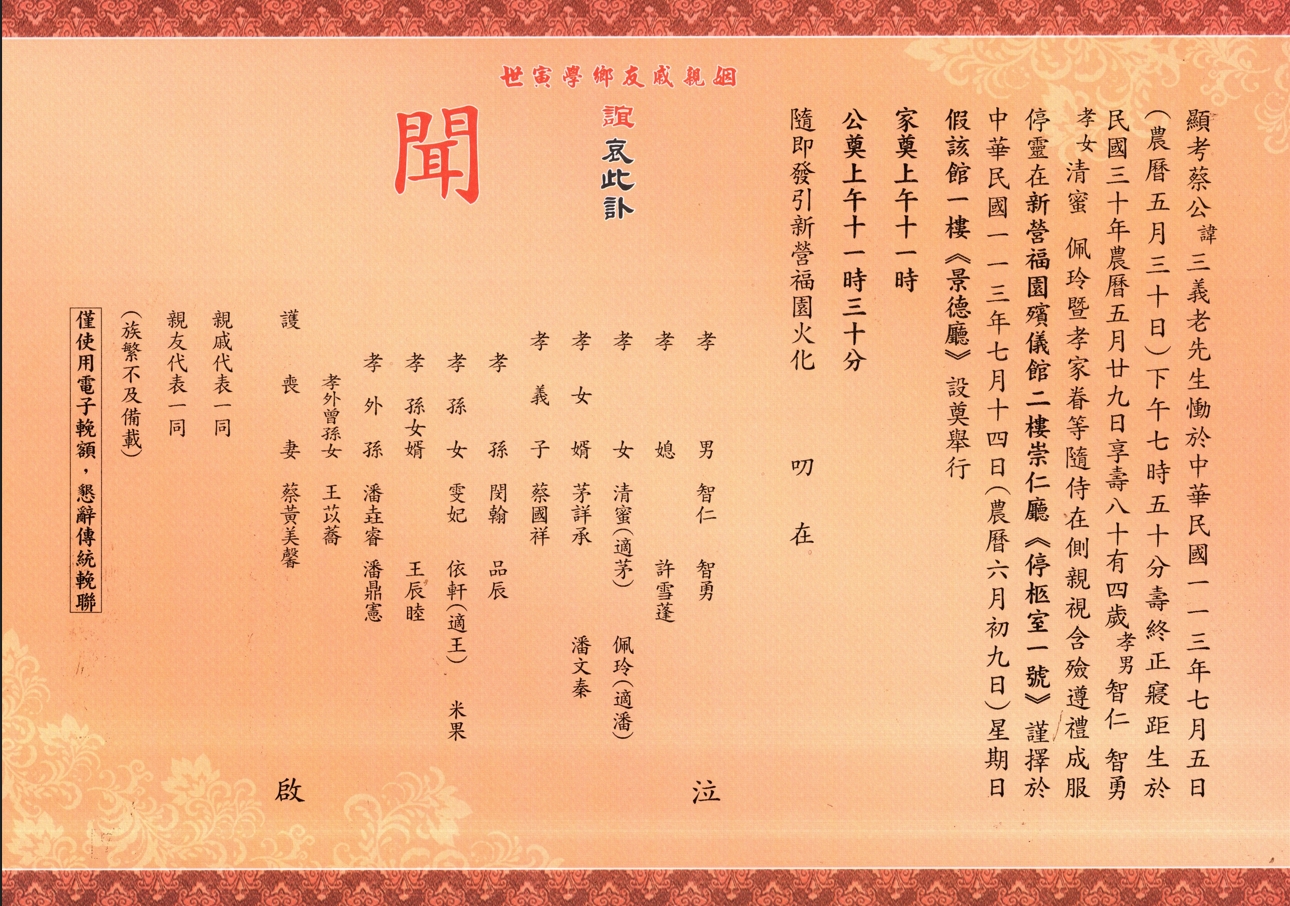 顯考蔡公諱三義老先生慟於中華民國一一三年七月五日
(農曆五月三十日)下午七時五十分壽終正寢距生於
民國三十年農曆五月廿九日享壽八十有四歲孝男智仁 智勇
孝女清蜜 佩玲暨孝家眷等隨侍在側親視含殮遵禮成服
停靈在新營福園殯儀館二樓崇仁廳《停柩室一號》謹擇於
中華民國一一三年七月十四日(農曆六月初九日)星期日
假該館一樓《景德廳》設奠舉行
家奠上午十一時
公奠上午十一時三十分
隨即發引新營福園火化 叨在
姻親戚友鄉學寅世
誼 哀此訃
聞
孝男 智仁 智勇 泣
孝媳 許雪蓬
孝女 清蜜(適茅) 佩玲(適潘)
孝女婿 茅詳承 潘文秦
孝義子 蔡國祥
孝孫 閔翰 品辰
孝孫女 雯妃 依軒(適王) 米果
孝孫女婿 王辰睦
孝外孫 潘垚睿 潘鼎憲
孝外曾孫女 王苡蕎
護喪妻 蔡黃美馨 啟
親戚代表一同
親友代表一同
(族繁不及備載)
僅使用電子輓額,懇辭傳統輓聯